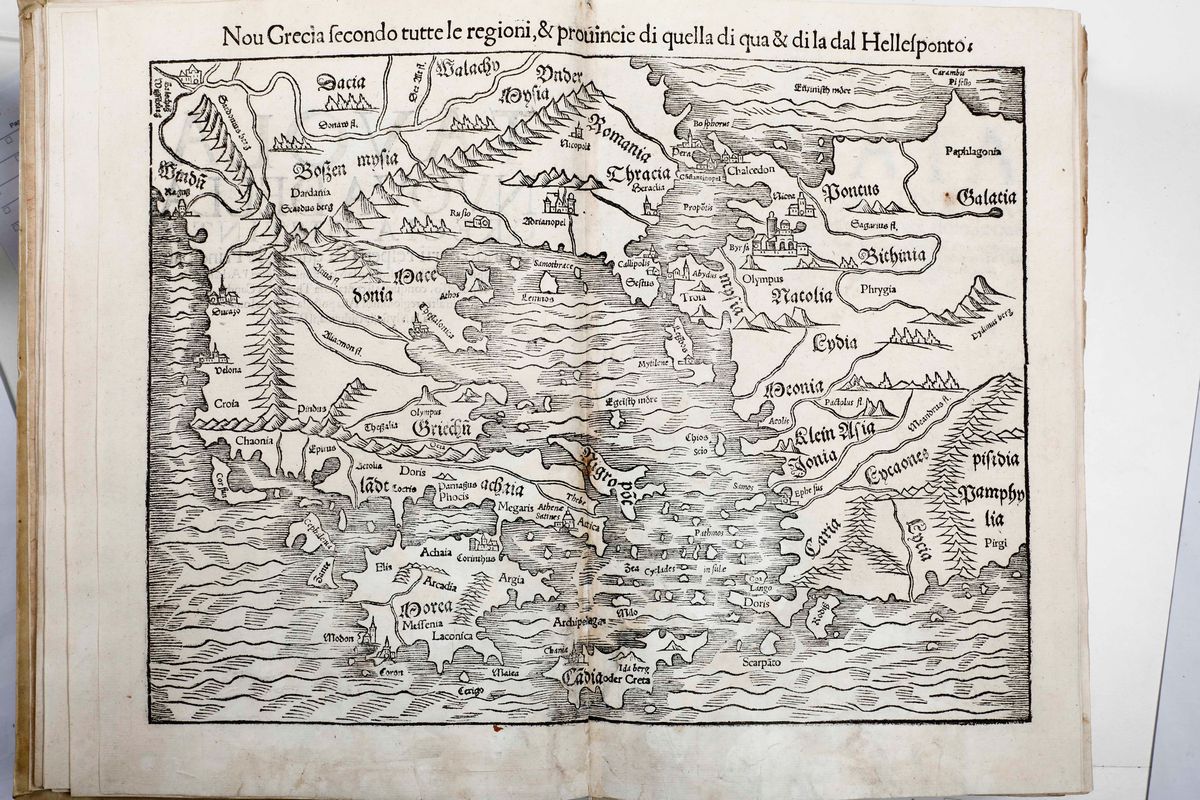 Nou Grecia secondo tutte le regioni, & prouincie di quella di qua & di la dal Hellesponto.
Dacia
Walachy
Vnder
Mysia
Donaw fl.
Carambis
Pisello
Bosphorus
Pera
Constantinopel
Chalcedon
Paphlagonia
Galatia
Pontus
Nicea
Sagarius fl.
Bithinia
Romania
Nicopoli
Thracia
Heraclia
Propotis
Boszen
mysia
Dardania
Scardus berg
Adrianopel
Ragusi
Byrsa
Olympus
Phrygia
Natolia
mysia
Callipolis
Sestus
Abydus
Troia
Samothrace
Lemnos
Mace
donia
Athos
Thessalonica
Durazo
Velona
Croia
Aliacmon fl.
Lesbos
Mytilene
Lydia
Dydimus berg
Meonia
Pactolus fl.
Aeolis
Meandrus fl.
Klein Asia
Jonia
Lycaones
pisidia
Pamphy
lia
Pirgi
Ephesus
Samos
Chios
Scio
Egeisch möre
Pindus
Olympus
Thessalia
Griechn
Chaonia
Epirus
Oeta
Aetolia
lādt
Locris
Doris
Parnasus
Phocis
achaia
Megaris
Thebe
Athene
Satines
Attica
Nigro
pōt
Corfu
Cephalenia
Zante
Achaia
Corinthus
Elis
Arcadia
Argia
Morea
Messenia
Laconica
Modon
Coron
Malea
Cerigo
Pathmos
Zea
Cyclades
insule
Coa
Lango
Doris
Milo
Archipelagus
Caria
Lycia
Rodis
Scarpāto
Chania
Ida berg
Cādia oder Creta